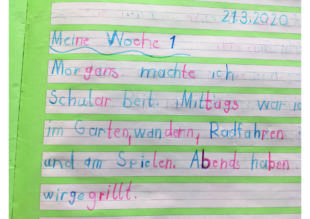 27.3.2020
Meine Woche 1
Morgans machte ich
Schular beit. Mittags war ic
im Garten, wandern, Radfahren
und am Spielen. Abends haben
wirgegrillt.